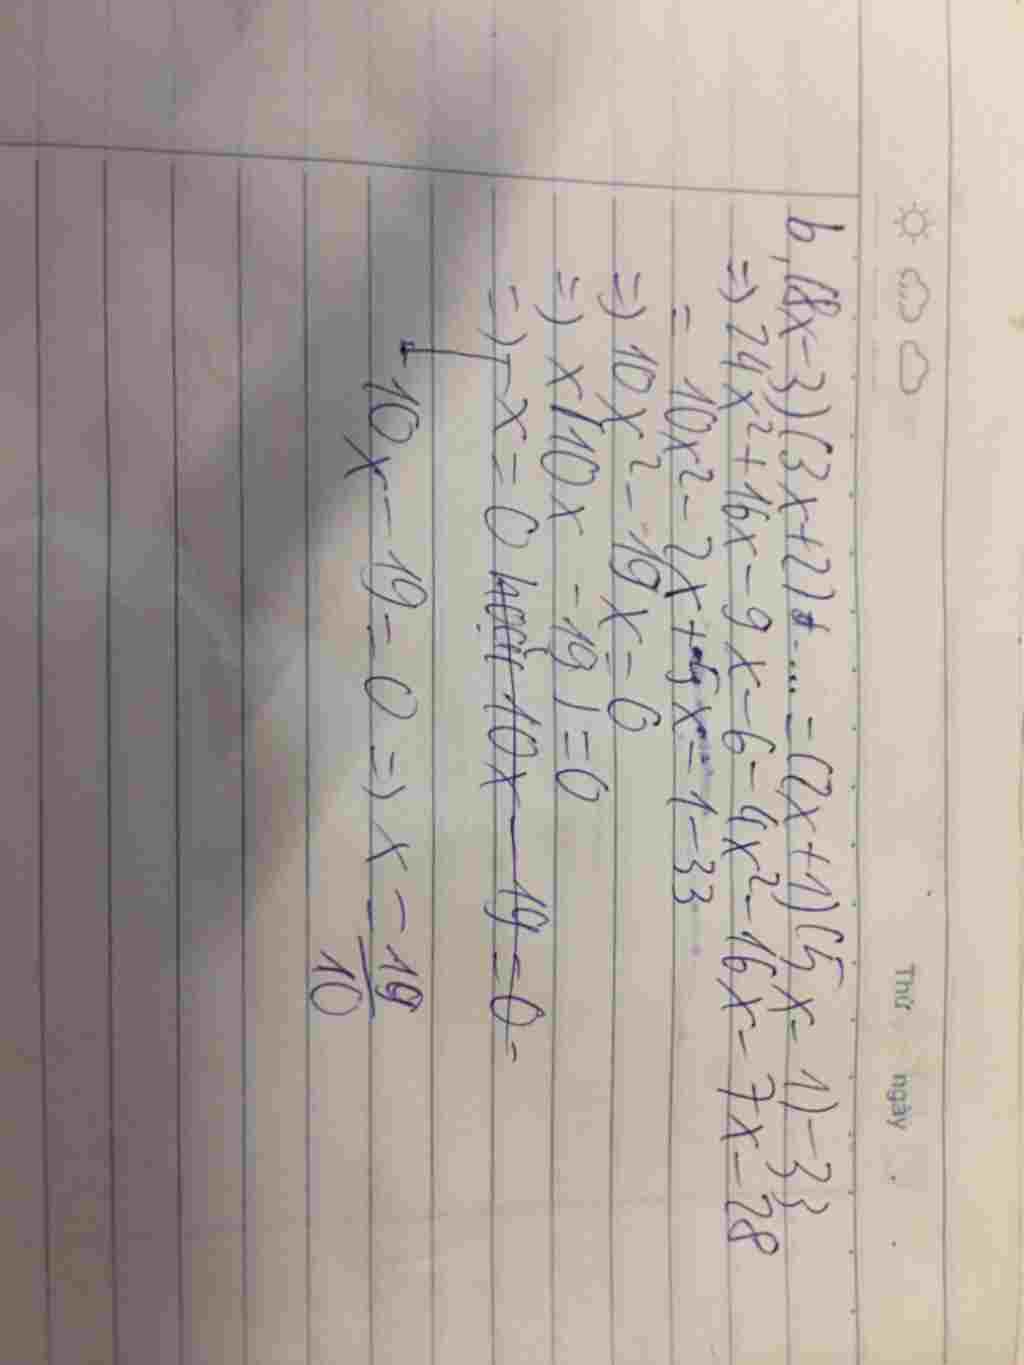 Thứ ngày
b, (8x-3)(3x+2) - ... = (2x+1)(5x-1)-33
=> 24x²+16x-9x-6-4x²-16x-7x-28
= 10x²-2x+5x-1-33
=> 10x²-19x=0
=> x(10x-19)=0
=> x=0 hoặc 10x-19=0
10x-19=0 => x=19/10